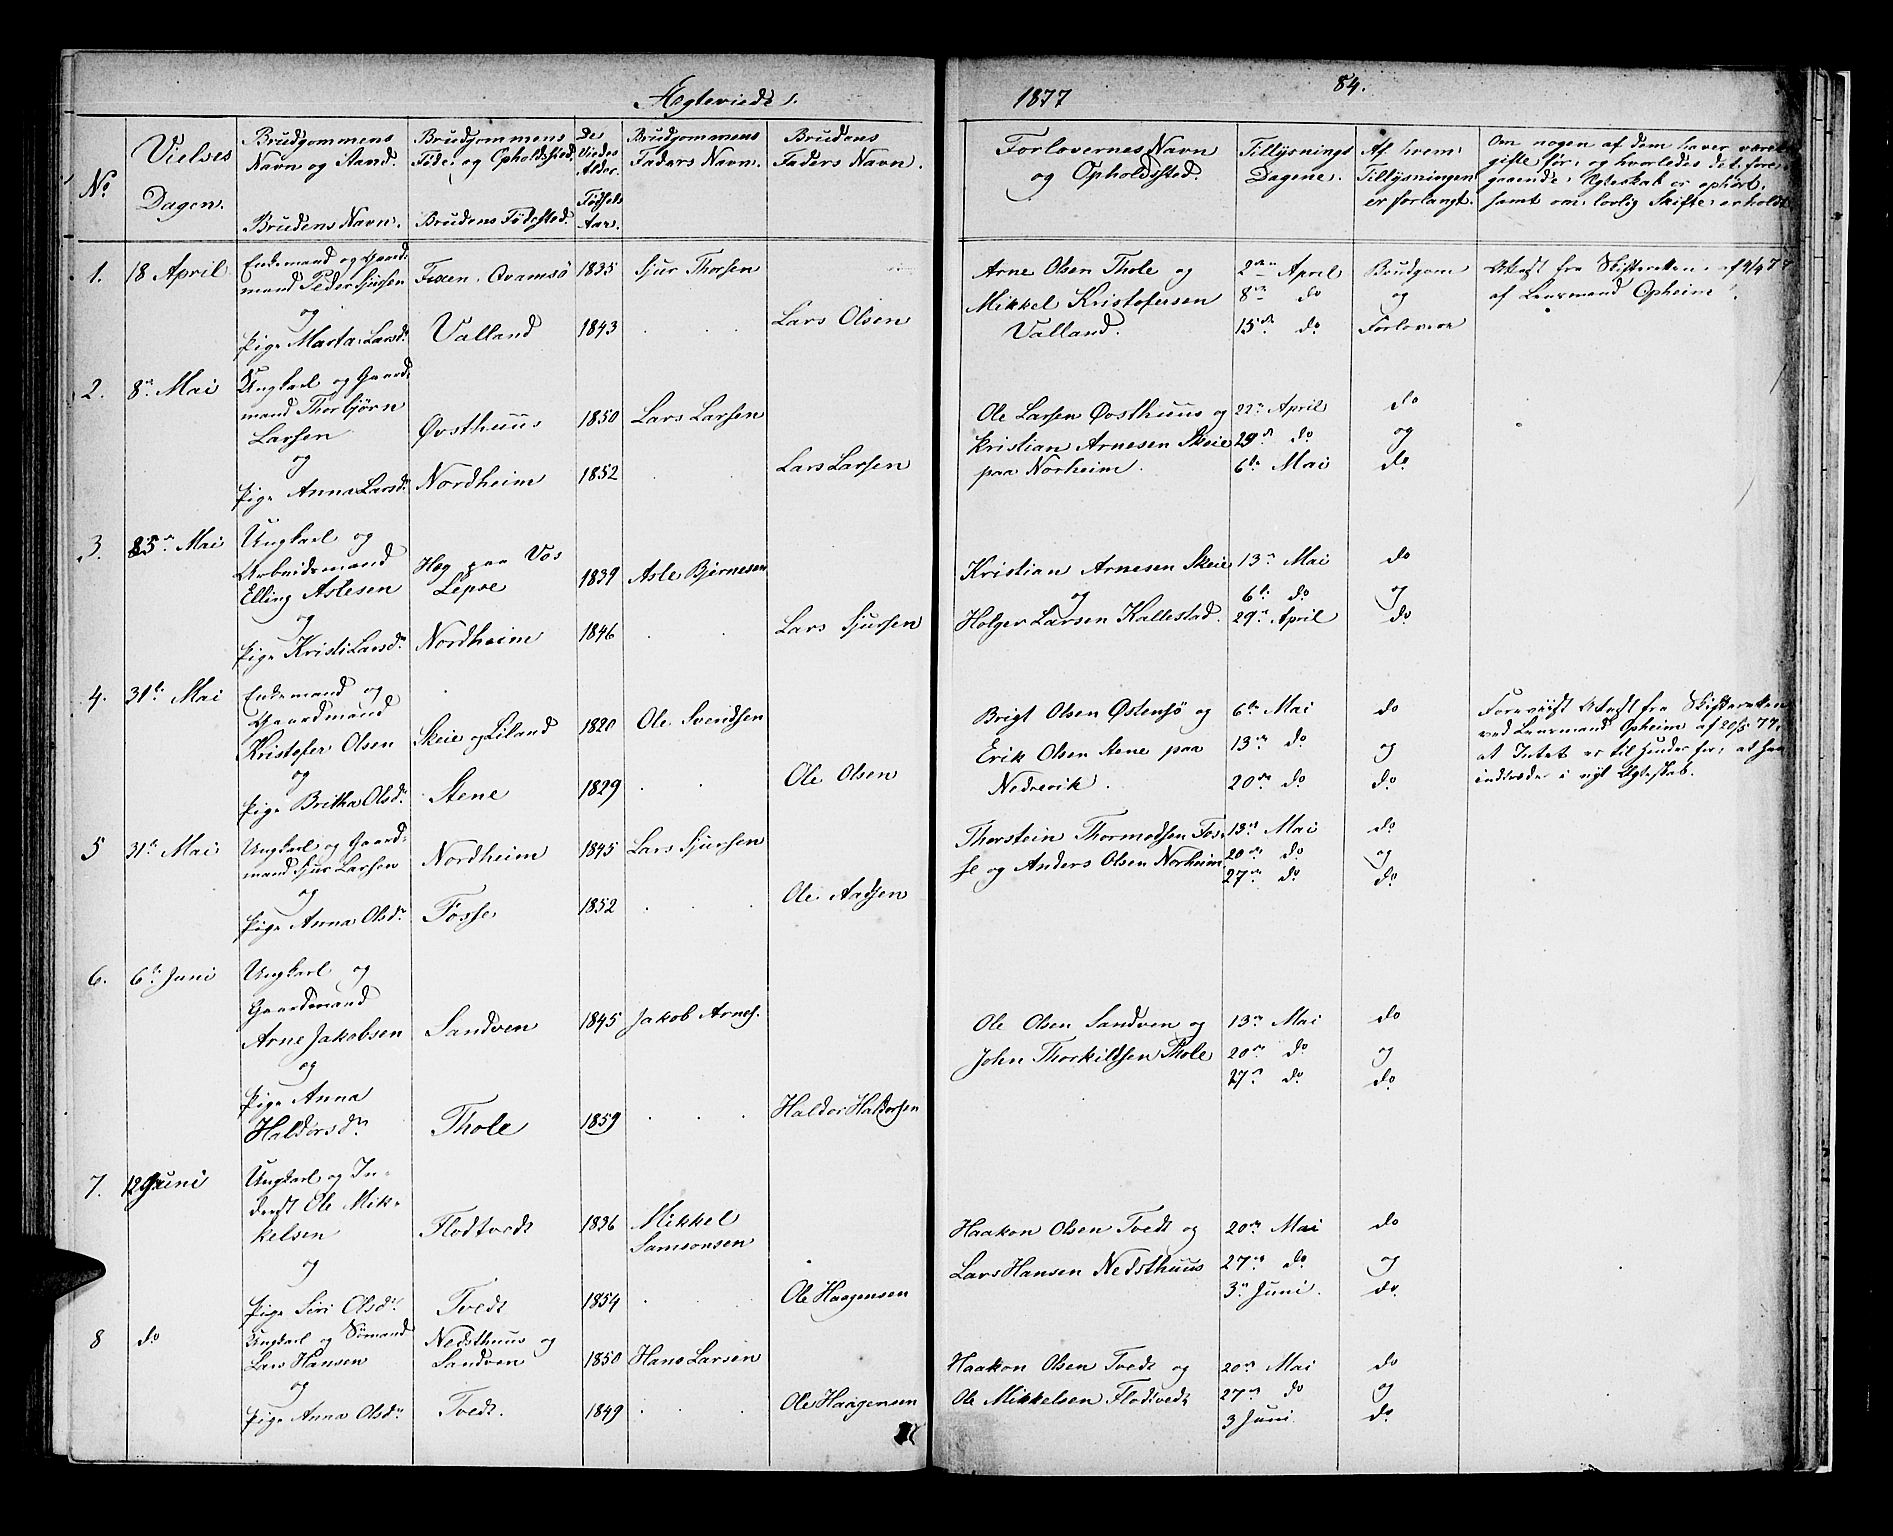 Ægteviede.
1877
84.
No
Vielses Dagen.
Brudgommens Navn og Stand.
Brudens Navn.
Brudgommens Føde- og Opholdssted.
Brudens Fødested.
De Viedes Alder. Fødsels Aar.
Brudgommens Faders Navn.
Brudens Faders Navn.
Forlovernes Navn og Opholdssted.
Tillysnings Dagene.
Af hvem Tillysningen er forlangt.
Om nogen af dem haver været gifte før, og hvorledes det foregaaende Ægteskab er ophørt, samt om lovlig Skifte erholdt
1. 18 April Enkemand og Gaardmand Peder Sjursen Fixen, Qvamsø 1835 Sjur Thorsen
og
Pige Marta Larsdr Valland 1843 . . Lars Olsen
Arne Olsen Thole og 2den April Brudgom
Mikkel Kristofersen 8de do og
Valland. 15de do Forlovere
Attest fra Skifteretten af 4/4 77
af Lensmand Opheim
2. 8de Mai Ungkarl og Gaardmand Thorbjørn Larsen Øvsthuus 1850 Lars Larsen
og
Pige Anna Larsdr Nordheim 1852 . . Lars Larsen
Ole Larsen Øvsthuus og 22de April do
Kristian Arnesen Skeie 29de do og
paa Norheim. 6te Mai do
3. 25de Mai Ungkarl og Arbeidsmand Elling Aslesen Hæg paa Vos Lepsø 1839 Asle Bjørnesen
og
Pige Kristi Larsdr Nordheim 1846 . . Lars Sjursen
Kristian Arnesen Skeie 13de Mai do
og 6te do og
Holger Larsen Kallestad. 29de April do
4. 31te Mai Enkemand og Gaardmand Kristofer Olsen Skeie og Liland 1820 Ole Svendsen
og
Pige Britha Olsdr Stene 1829 . . Ole Olsen
Brigt Olsen Østensø og 6te Mai do
Erik Olsen Stene paa 13de do og
Nedrevik. 20de do do
Forevist Attest fra Skifteretten
ved Lensmand Opheim af 20/5 77,
at Intet er til Hinder for, at han
indtræder i nyt Ægteskab.
5 31te Mai Ungkarl og Gaardmand Sjur Larsen Nordheim 1845 Lars Sjursen
og
Pige Anna Olsdr Fosse 1852 . . . Ole Aadsen
Thorstein Thormodsen Fos- 13de Mai do
se og Anders Olsen Norheim 20de do og
27de do do
6. 6te Juni Ungkarl og Gaardmand Arne Jakobsen Sandven 1845 Jakob Arnes.
og
Pige Anna Haldorsdr Thole 1859 . . Haldor Haldorsen
Ole Olsen Sandven og 13de Mai do
John Thorkildsen Thole 20de do og
27de do do
7. 12 Juni Ungkarl og Inderst Ole Mikkelsen Flodtvedt 1836 Mikkel Samsonsen
og
Pige Siri Olsdr Tvedt 1854 . . . Ole Haagensen
Haakon Olsen Tvedt og 20de Mai do
Lars Hansen Nedsthuus 27de do og
3de Juni. do
8 do Ungkarl og Sømand Lars Hansen Nedsthuus og Sandven 1850 Hans Larsen
og
Pige Anna Olsdr Tvedt. 1849 . . . Ole Haagensen
Haakon Olsen Tvedt og 20de Mai do
Ole Mikkelsen Flodtvedt 27de do og
3 Juni. do